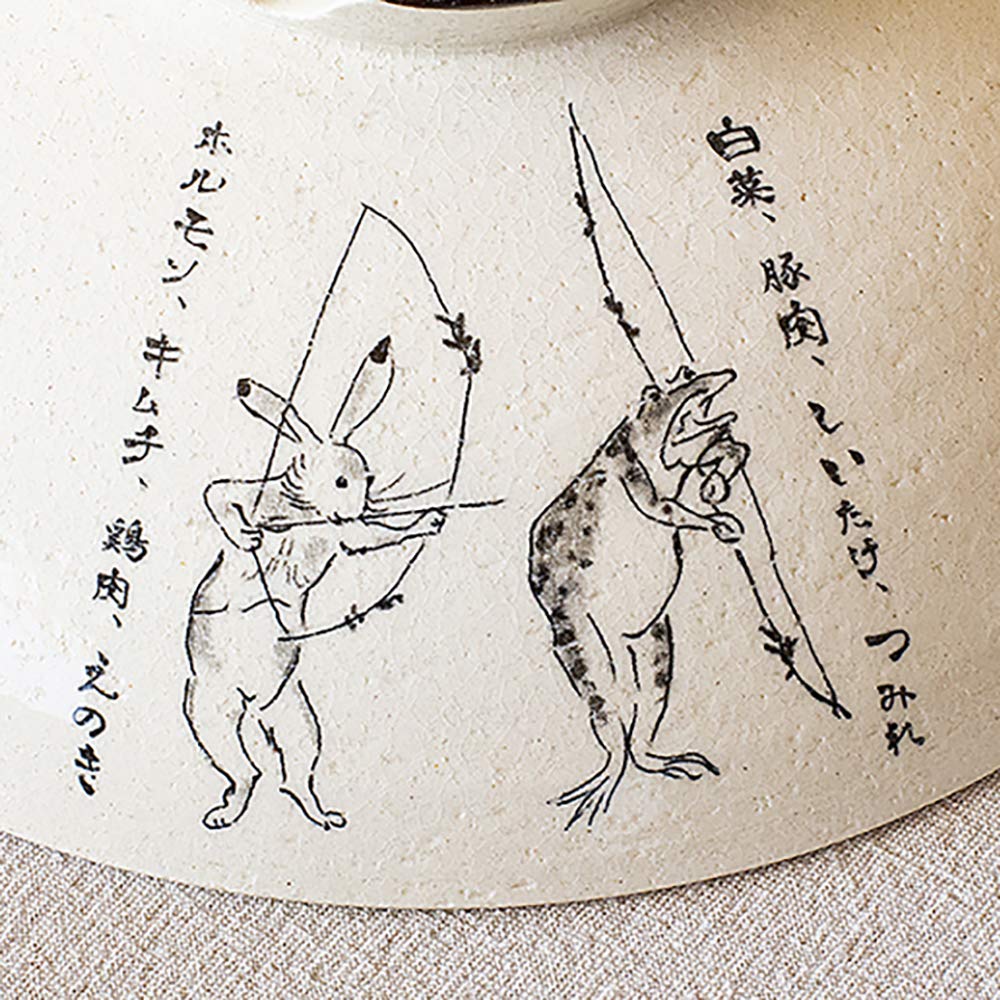 白菜、豚肉、しいたけ、つみれ
ホルモン、キムチ、鶏肉、えのき